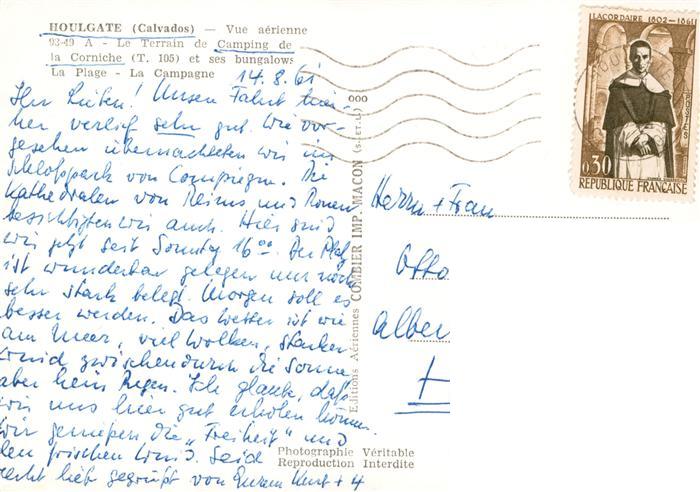 HOULGATE (Calvados) — Vue aérienne
93-49 A - Le Terrain de Camping de
la Corniche (T. 105) et ses bungalows
La Plage - La Campagne
14.8.61
Ihr Lieben! Unsere Fahrt hier-
her verlief sehr gut. Wie vor-
gesehen übernachteten wir im
Schlosspark von Compiègne. Die
Kathedralen von Reims und Rouen
besichtigten wir auch. Hier sind
wir jetzt seit Sonntag 16⁰⁰. Der Platz
ist wunderbar gelegen nur noch
sehr stark belegt. Morgen soll es
besser werden. Das Wetter ist wie
am Meer, viel Wolken, starker
Wind zwischendurch die Sonne
aber kein Regen. Ich glaube, daß
wir uns hier gut erholen können.
Wir genießen die „Freiheit" und
den frischen Wind. Seid
recht lieb gegrüßt von Eurem Kurt + 4
Editions Aériennes COMBIER IMP. MACON (S.-ET-L.)
Photographie Véritable
Reproduction Interdite
LACORDAIRE 1802-1861
0,30
REPUBLIQUE FRANÇAISE
Herrn + Frau
Otto
Alber